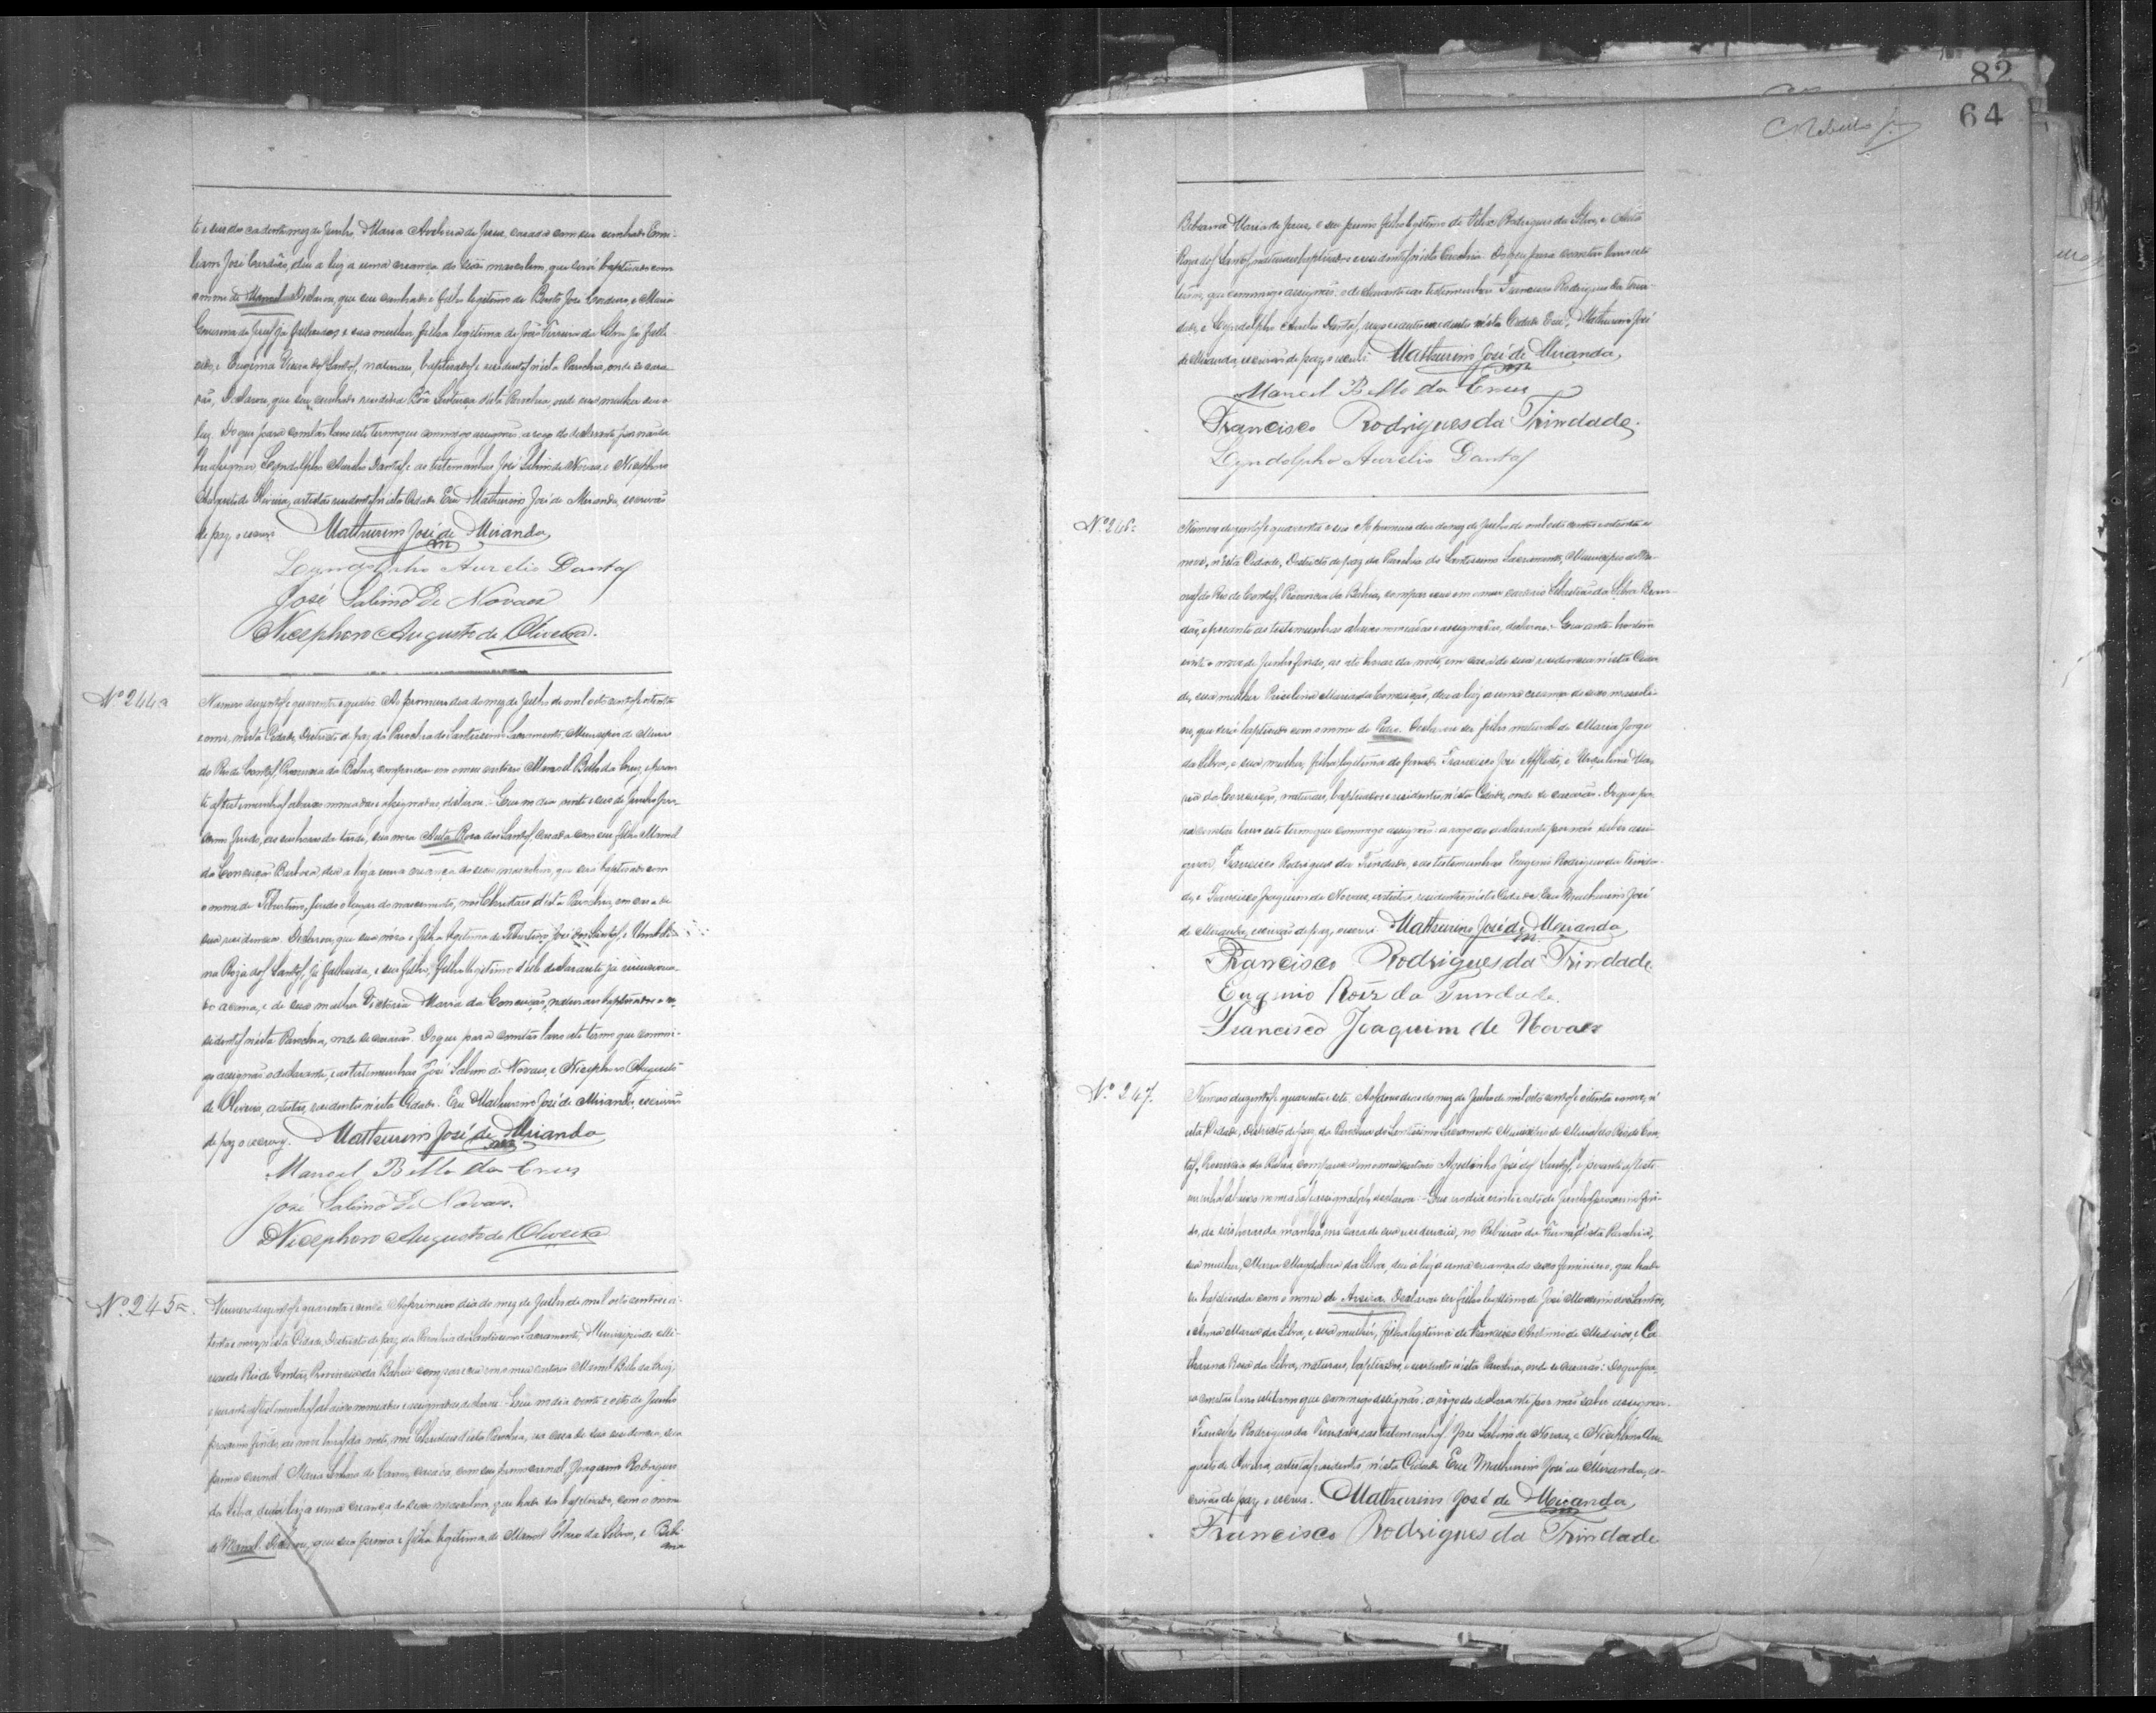 te e seis do cadente mez de Junho Maria de Jesus, casada com seu cunhado
José deu a luz a uma creança do sexo masculino, que será baptisado com
o nome de Manoel Declarou, que seu cunhado é filho legitimo de Bento José Cordeiro, e Maria
de Jesus já fallecidos, e sua mulher, filha legitima de João Ferreira da Silva já falle-
cido, e Eugenia dos Santos, naturaes, baptisados e residentes nésta Parochia, onde se casa-
rão, Declarou, que seu cunhado reside na Bôa d'ésta Parochia, onde sua mulher deu a
luz. Do que para constar lavro este termo que commigo assignão: a rogo do declarante por não sa-
ber assignar Lyndolpho Aurelio Dantas, e as testemunhas José Sabino de Novaes, e Nicephoro
Augusto de Oliveira, artistas residentes nésta Cidade. Eu Mathurino José de Miranda, escrivão
de paz, o escrevi. Mathurino José de Miranda
Lyndolpho Aurelio Dantas
José Sabino De Novaes
Nicephoro Augusto de Oliveira.
Nº 244
Numero duzentos e quarenta e quatro. Ao primeiro dia do mez de Julho de mil oito centos e oitenta
e nove, nésta Cidade, Districto de paz da Parochia do Santissimo Sacramento, Municipio de Minas
do Rio de Contas, Provincia da Bahia, compareceu em o meu cartorio Manoel Bello da Cruz, e peran-
te as testemunhas abaixo nomeadas e assignadas, declarou: Que no dia vinte e seis de Junho pro-
ximo findo, as seis horas da tarde, sua nora Auta Rosa dos Santos, casada com seu filho Manoel
da Conceição Barbosa, deu a luz a uma creança do sexo masculino, que será baptisado com
o nome de Tiburtino, sendo o lugar do nascimento, nos d'ésta Parochia, em casa de
sua residencia. Declarou, que sua nóra é filha legitima de Tiburtino José dos Santos, e Umbeli-
na Roza dos Santos, já fallecida, e seu filho, filho legitimo d'elle declarante já mensiona-
do acima, e de sua mulher Victoria Maria da Conceição, naturaes baptisados e re-
sidentes nésta Parochia, onde se casarão. Do que para constar lavro este termo que commi-
go assignão o declarante, e as testemunhas José Sabino de Novaes, e Nicephoro Augusto
de Oliveira, artistas, residentes nésta Cidade. Eu Mathurino José de Miranda, escrivão
de paz o escrevy. Mathurino José de Miranda
Manoel Bello da Cruz
José Sabino De Novaes.
Nicephoro Augusto de Oliveira
Nº 245
Numero duzentos e quarenta e cinco. Ao primeiro dia do mez de Julho de mil oito centos e oi-
tenta e nove, nesta Cidade, Districto de paz, da Parochia do Santissimo Sacramento Municipio de Mi-
nas do Rio de Contas, Provincia da Bahia compareceu em o meu cartorio Manoel Bello da Cruz,
e perante as testemunhas abaixo nomeadas e assignadas declarou: Que no dia vinte e oito de Junho
proximo findo, as nove horas da noite, nos d'esta Parochia, na casa de sua residencia, sua
prima carnal, Maria do Carmo, casada, com seu primo carnal, Joaquim Rodrigues
da Silva, deu a luz a uma creança do sexo masculino, que hade ser baptisado, com o nome
de Manoel. Declarou, que sua prima é filha legitima de Manoel da Silva, e Bibi-
ana
C Rebello Jr
82
64
Bibianna Maria de Jesus, e seu primo filho legitimo de Felix Rodrigues da Silva, e Anna
Roza dos Santos, naturaes baptisados e residentes nésta Parochia. Do que para constar lavro este
termo, que commigo assignão: o declarante e as testemunhas Francisco Rodrigues da Trin-
dade, e Lyndolpho Aurelio Dantas, nésta Cidade. Eu, Mathurino José
de Miranda, escrivão de paz, o escrevi. Mathurino José de Miranda,
Manoel Bello da Cruz
Francisco Rodrigues da Trindade.
Lyndolpho Aurelio Dantas
Nº 246
Numero duzentos e quarenta e seis. Ao primeiro dia do mez de Julho de mil oito centos e oitenta e
nove, nésta Cidade, Districto de paz da Parochia do Santissimo Sacramento, Municipio de Mi-
nas do Rio de Contas, Provincia da Bahia, compareceu em o meu cartorio Sebastião da Silva
e perante as testemunhas abaixo nomeadas e assignadas, declarou: Que ante hontem
vinte e nove de Junho findo, as oito horas da noite, em casa de sua residencia nésta Cida-
de, sua mulher Maria da Conceição, deu a luz a uma creança do sexo masculi-
no, que será baptisado com o nome de Pedro. Declarou ser filho natural de Maria Jorge
da Silva, e sua mulher, filha legitima do finado Francisco José Afflicto, e Ursulina Ma-
ria da Conceição, naturaes, baptisados e residentes nésta Cidade, onde se casarão. Do que pa-
ra constar lavro este termo que commigo assignão: a rogo do declarante por não saber assi-
gnar, Francisco Rodrigues da Trindade, e as testemunhas Eugenio Rodrigues da Trinda-
de, e Francisco Joaquim de Novaes, artistas, residentes nésta Cidade. Eu Mathurino José
de Miranda, escrivão de paz, o escrevi. Mathurino José de Miranda
Francisco Rodrigues da Trindade.
Eugenio Roiz da Trindade.
Francisco Joaquim de Novaes
Nº 247.
Numero duzentos e quarenta e sete. Aos dous dias do mez de Julho de mil oito centos e oitenta e nove, n'
esta Cidade, Districto de paz, da Parochia do Santissimo Sacramento Municipio de Minas do Rio de Con-
tas, Provincia da Bahia, compareceu em o meu cartorio Agostinho José dos Santos, e perante as teste-
munhas abaixo nomeadas e assignadas, declarou: Que no dia vinte e oito de Junho proximo fin-
do, as seis horas da manhã, na casa de sua residencia, no Ribeirão da d'ésta Parochia,
sua mulher, Maria Magdalena da Silva, deu á luz a uma creança do sexo feminino, que hade
ser baptisada com o nome de Declarou ser filho legitimo de José dos Santos,
e Anna Maria da Silva, e sua mulher, filha legitima de Francisco Antonio de Medeiros, e Ca-
tharina Rosa da Silva, naturaes, baptisados, e residentes nésta Parochia, onde se casarão: Do que pa-
ra constar lavro este termo que commigo assignão: a rogo do declarante por não saber assignar.
Francisco Rodrigues da Trindade, e as testemunhas José Sabino de Novaes, e Nicephoro Au-
gusto de Oliveira, artistas residentes, nésta Cidade. Eu Mathurino José de Miranda, es-
crivão de paz, o escrevi. Mathurino José de Miranda,
Francisco Rodrigues da Trindade